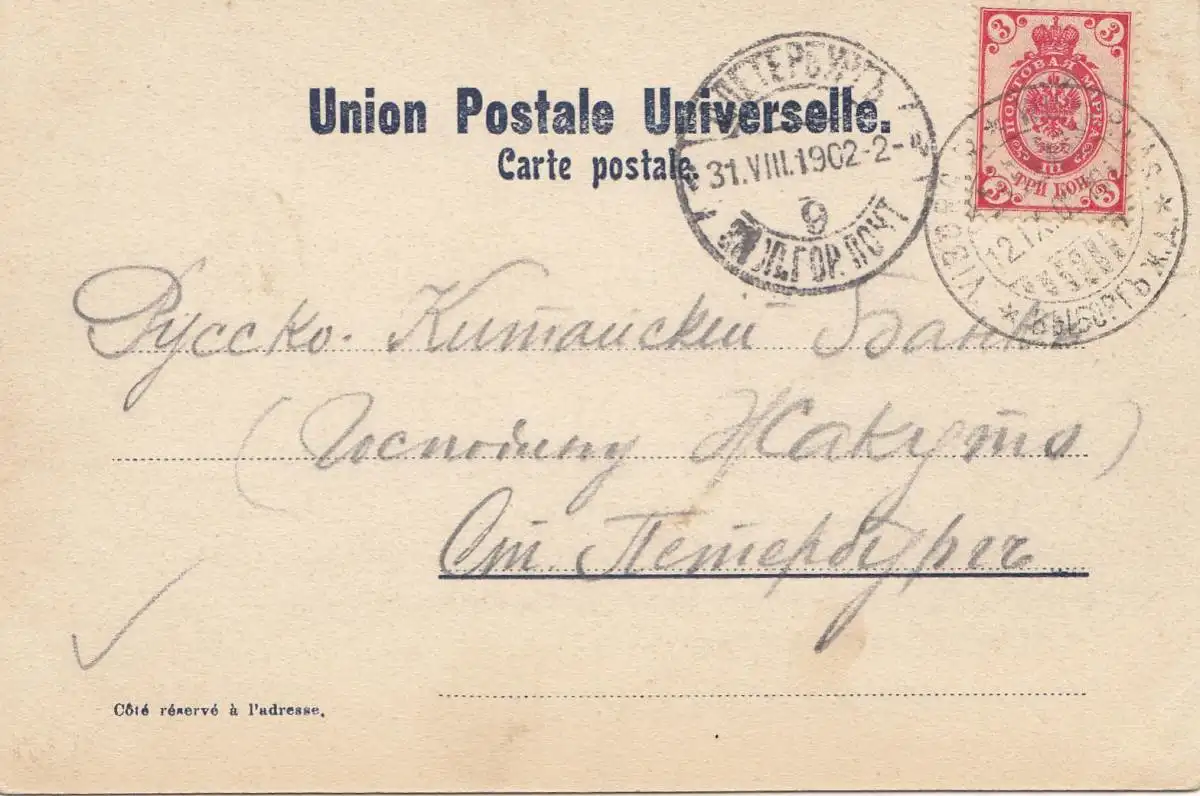 Union Postale Universelle.
Carte postale.
31.VIII.1902-2-
9
ГОР. ПОЧТ
3 3
ПОЧТОВАЯ МАРКА
III
ТРИ КОП.
3 3
12.IX
ВЫБОРГЪ Ж.Д.
Русско-Китайскій Банкъ
(Господину Жакуто)
Ст. Петербургъ
Côté réservé à l'adresse.